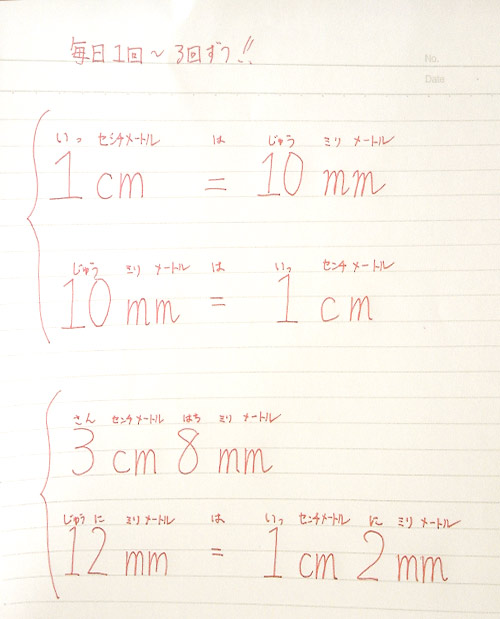 毎日1回～3回ずつ!!
No.
Date
いっ センチメートル は じゅう ミリ メートル
1 cm = 10 mm
じゅう ミリ メートル は いっ センチ メートル
10 mm = 1 cm
さん センチメートル はち ミリ メートル
3 cm 8 mm
じゅう に ミリ メートル は いっ センチメートル に ミリ メートル
12 mm = 1 cm 2 mm